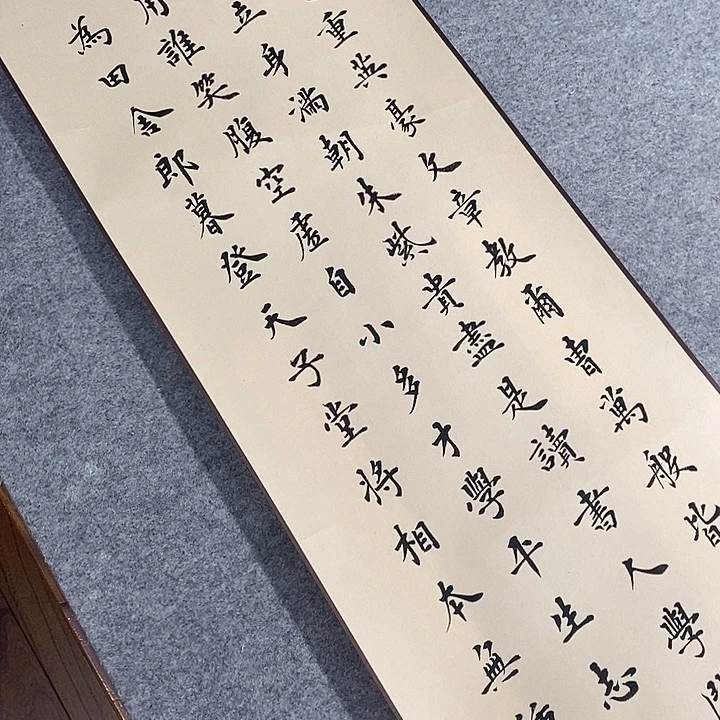 重英豪文章教爾曹萬般皆
立身滿朝朱紫貴盡是讀書人學
用誰笑腹空虛自小多才學平生志
為田舍郎暮登天子堂將相本無